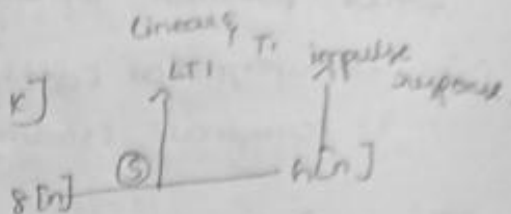 Linear & TI
LTI impulse
response
k]
δ[n] Ⓢ h[n]